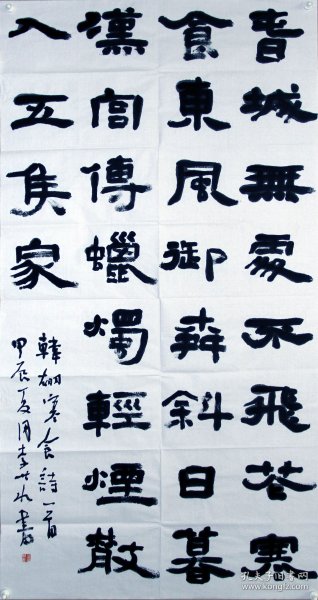 春城無處不飛花寒
食東風御柳斜日暮
漢宮傳蠟燭輕煙散
入五侯家
韓翃寒食詩一首
甲辰夏月李世書
孔夫子旧书网